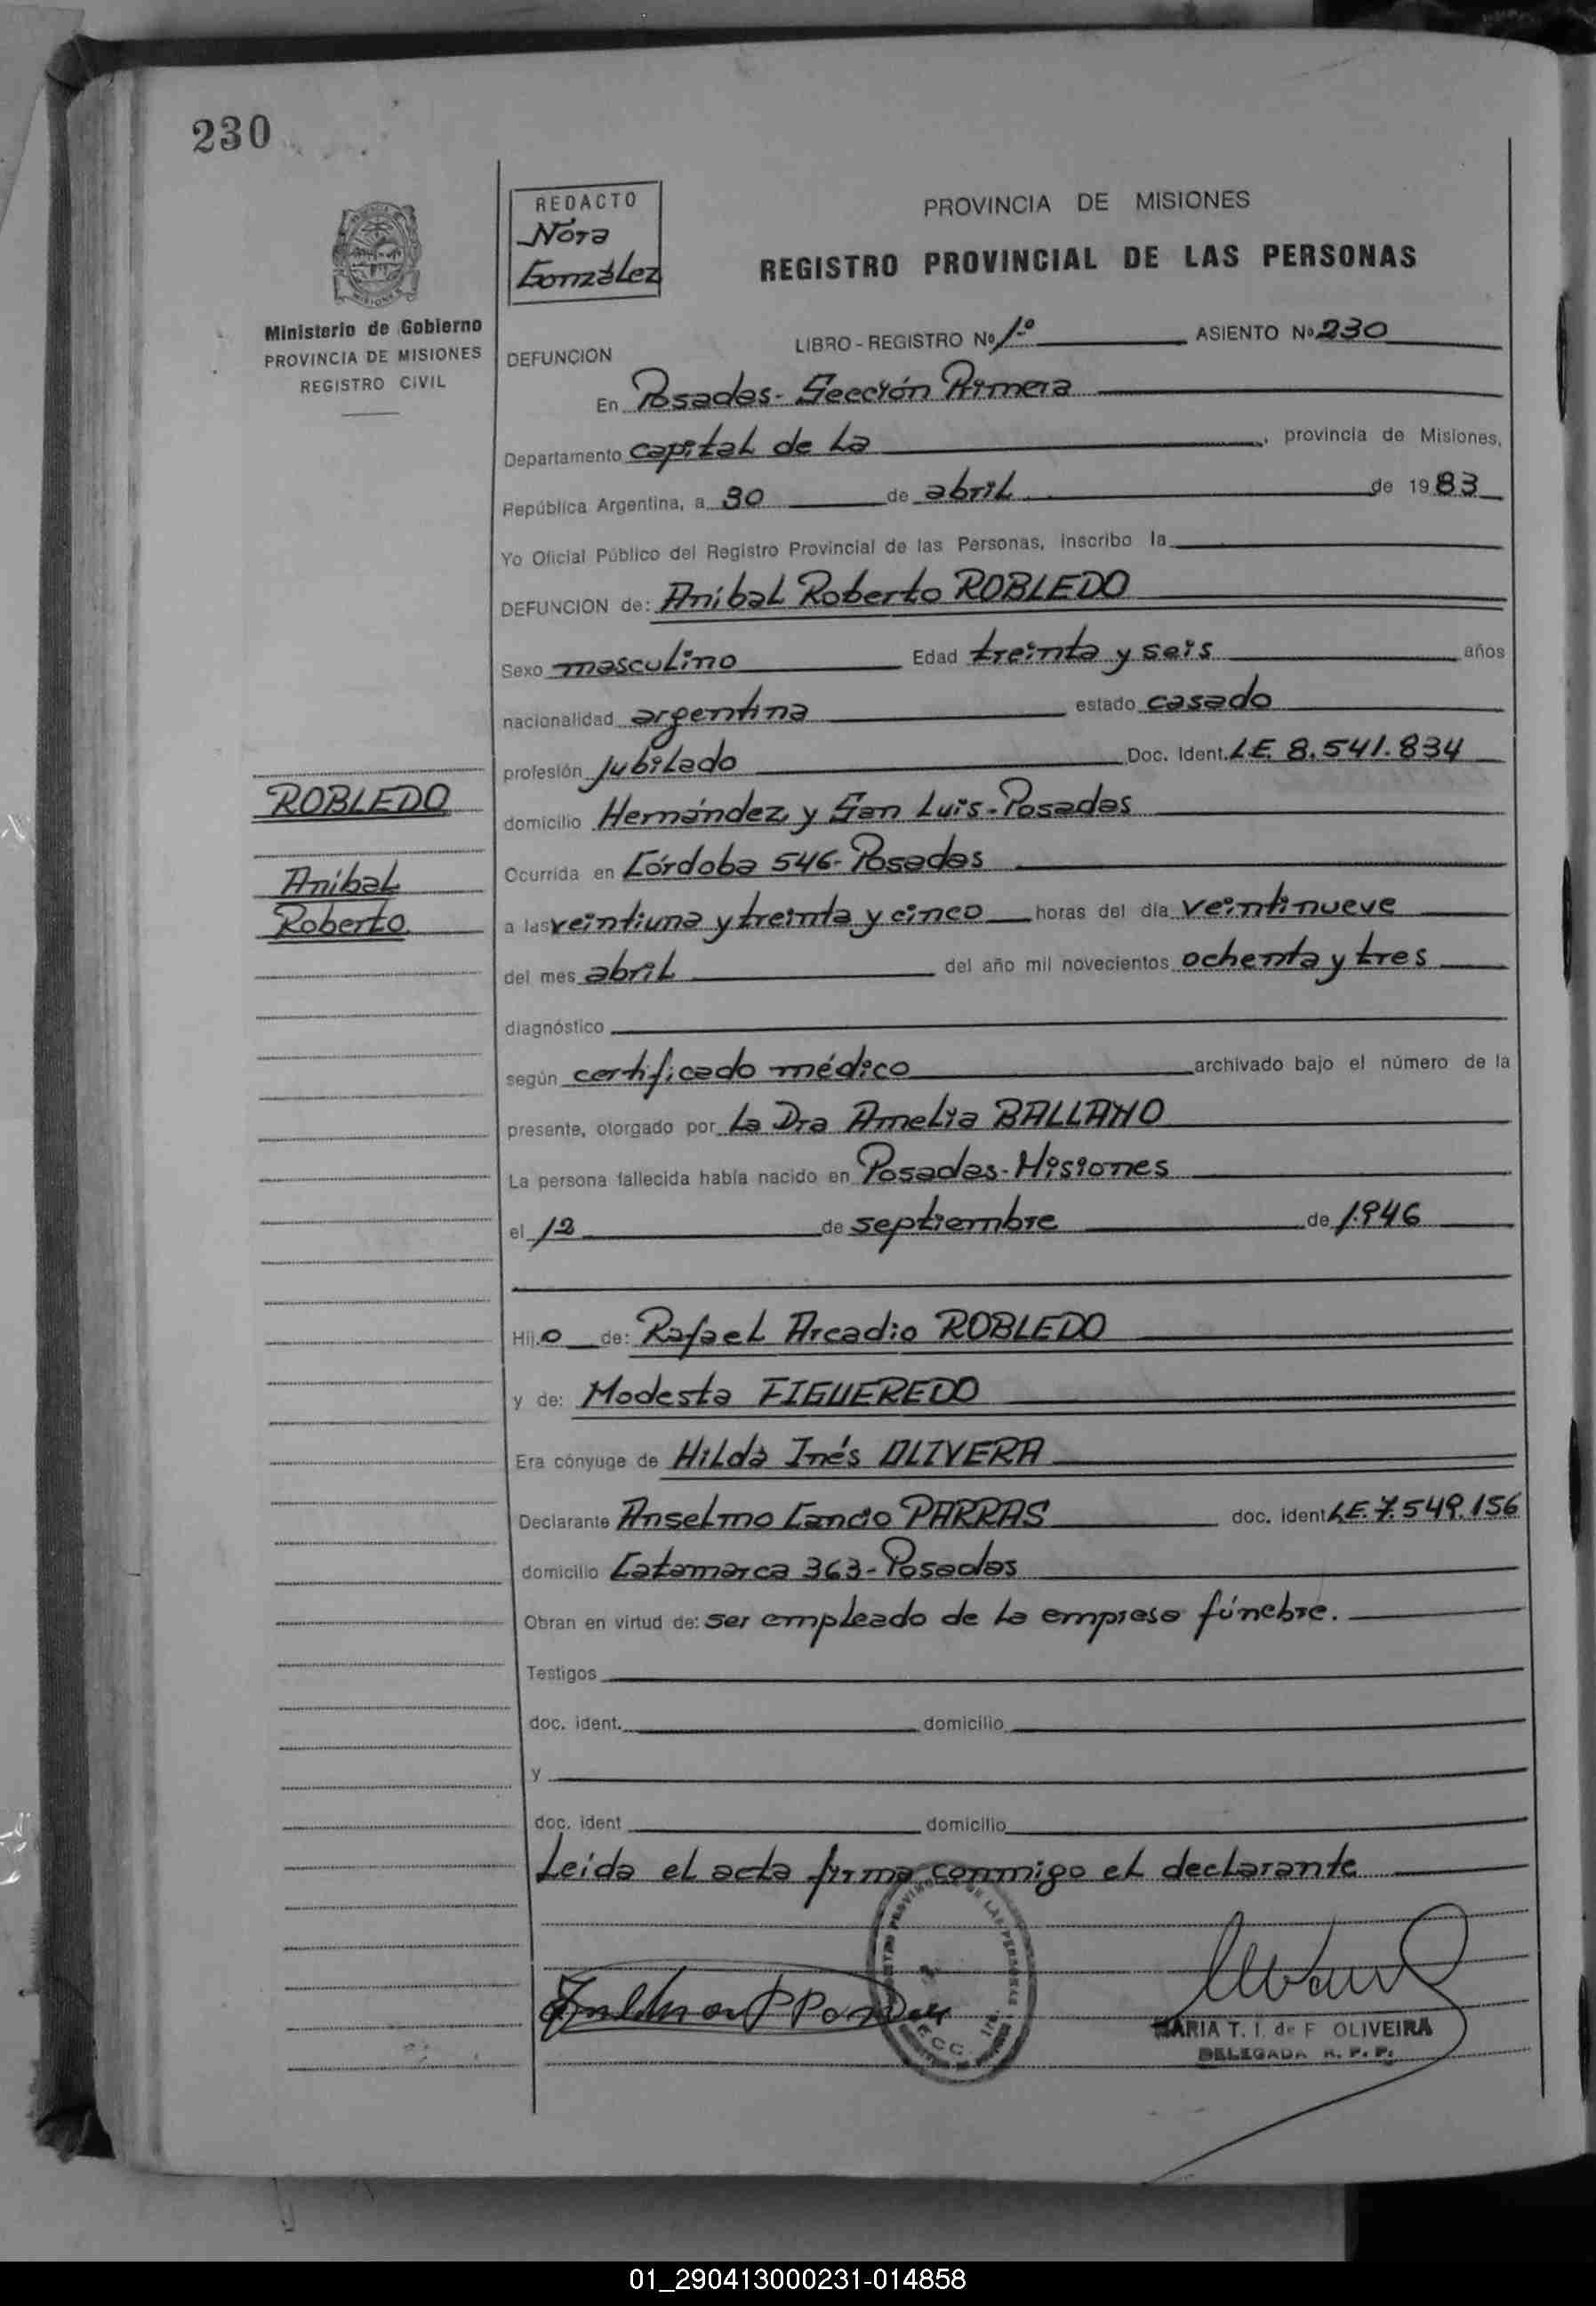 230
REDACTO
Nora
González
PROVINCIA DE MISIONES
REGISTRO PROVINCIAL DE LAS PERSONAS
Ministerio de Gobierno
PROVINCIA DE MISIONES
REGISTRO CIVIL
DEFUNCION
LIBRO - REGISTRO Nº 1º ASIENTO Nº 230
En Posadas - Sección Primera
Departamento capital de la, provincia de Misiones,
República Argentina, a 30 de abril de 1983
Yo Oficial Público del Registro Provincial de las Personas, inscribo la
DEFUNCION de: Aníbal Roberto ROBLEDO
Sexo masculino Edad treinta y seis años
nacionalidad argentina estado casado
profesión jubilado Doc. Ident. L.E. 8.541.834
ROBLEDO
domicilio Hernández y San Luis - Posadas
Ocurrida en Córdoba 546 - Posadas
Aníbal
Roberto
a las veintiuna y treinta y cinco horas del día veintinueve
del mes abril del año mil novecientos ochenta y tres
diagnóstico
según certificado médico archivado bajo el número de la
presente, otorgado por la Dra Amelia BALLANO
La persona fallecida había nacido en Posadas - Misiones
el 12 de septiembre de 1.946
Hijo de: Rafael Arcadio ROBLEDO
y de: Modesta FIGUEREDO
Era cónyuge de Hilda Inés OLIVERA
Declarante Anselmo PARRAS doc. ident L.E. 7.549.156
domicilio Catamarca 363 - Posadas
Obran en virtud de: ser empleado de la empresa fúnebre.
Testigos
doc. ident. domicilio
y
doc. ident domicilio
Leída el acta firma conmigo el declarante
MARIA T. I. de F OLIVEIRA
DELEGADA R. P. P.
01_290413000231-014858